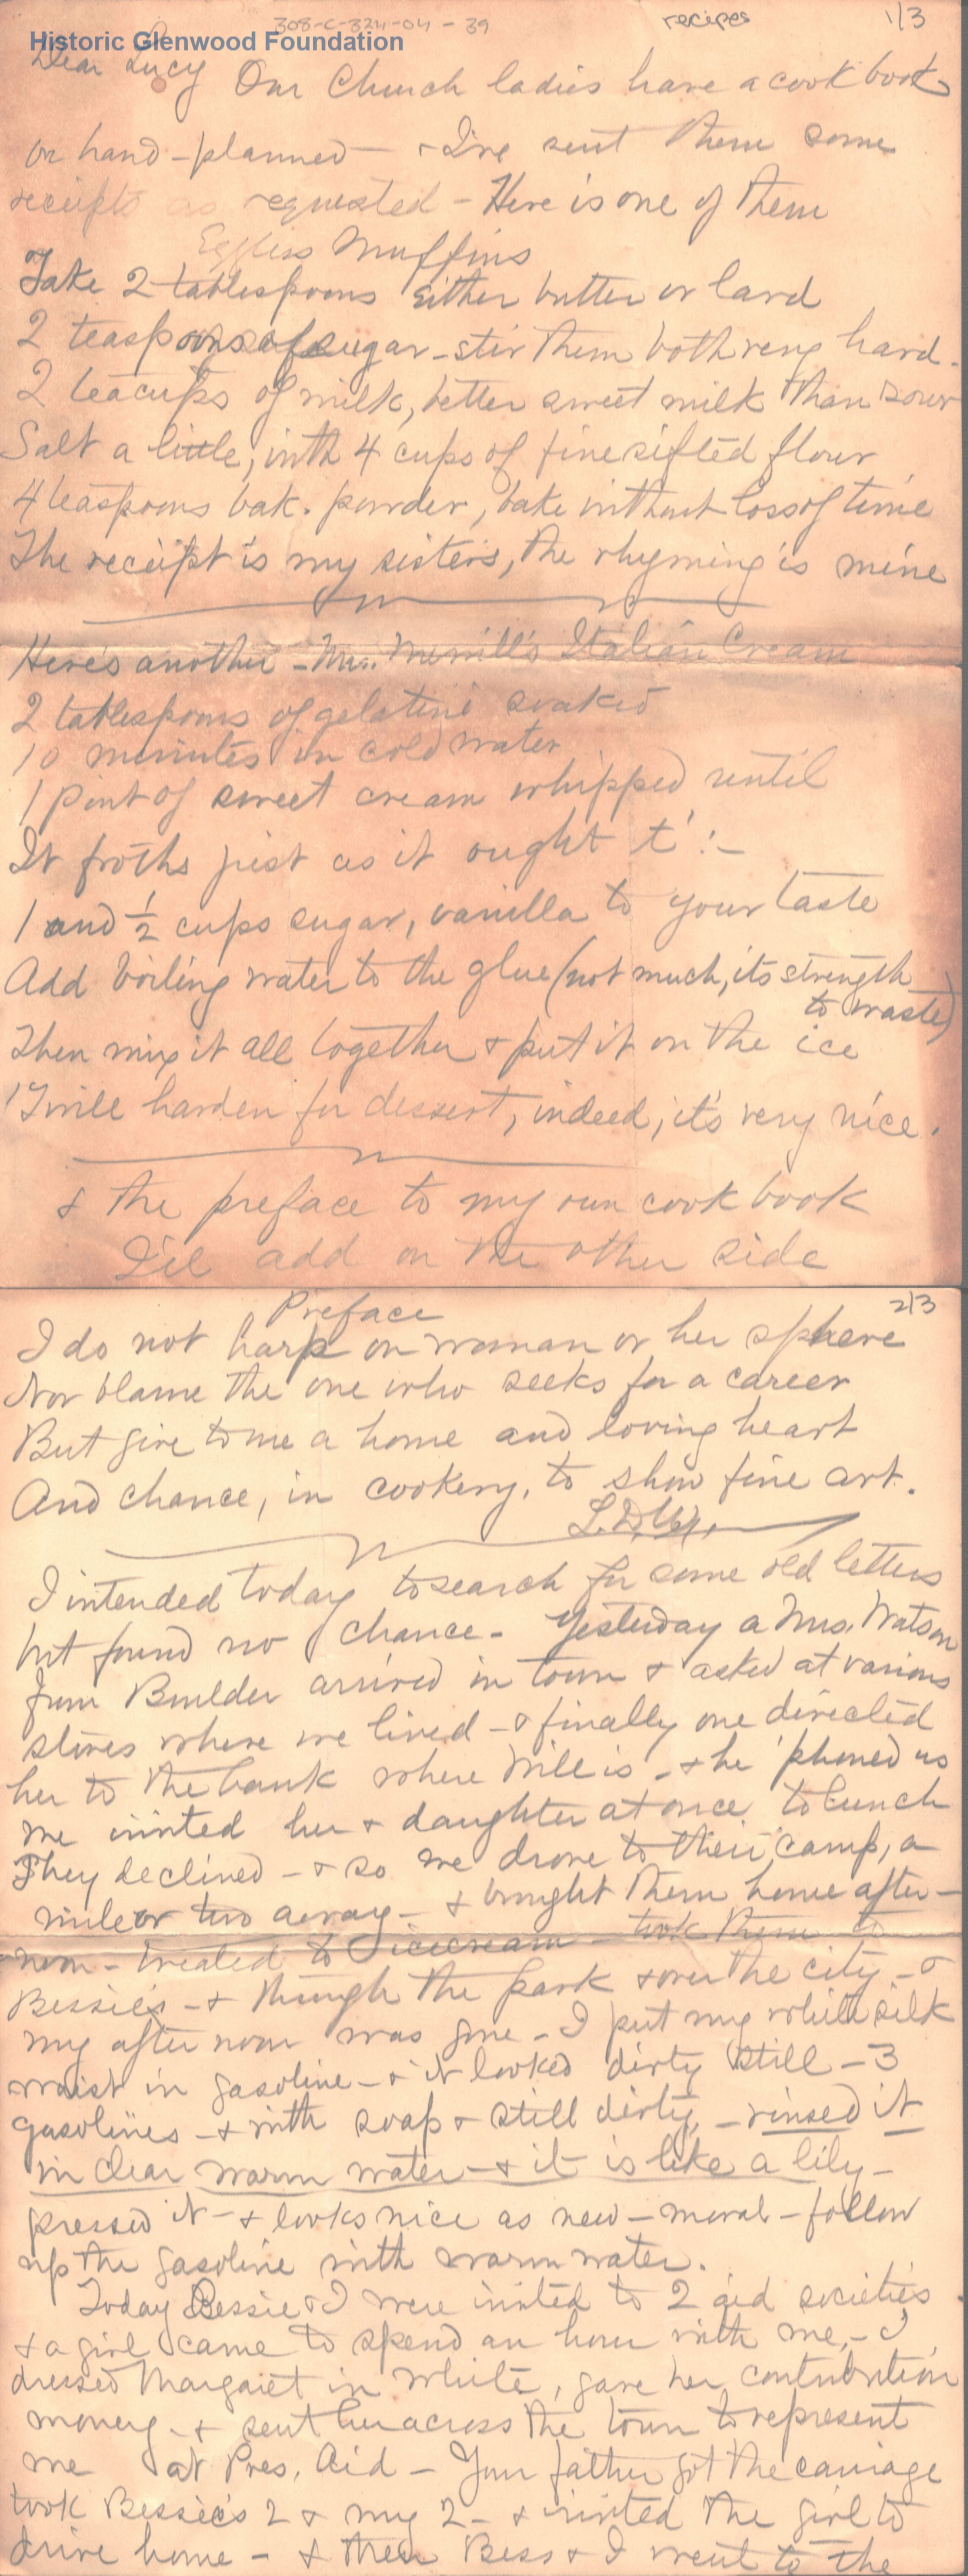 308-C-324-04-39
recipes
1/3
Historic Glenwood Foundation
Dear Lucy Our Church ladies have a cook book
on hand - planned - & I've sent them some
receipts as requested - Here is one of them
Eggless Muffins
Take 2 tablespoons either butter or lard
2 teaspoons of sugar - stir them both very hard.
2 teacups of milk, better sweet milk than sour
Salt a little, with 4 cups of fine sifted flour
4 teaspoons bak. powder, bake without loss of time
The receipt is my sisters, the rhyming is mine
Here's another - Mrs. Merrill's Italian Cream
2 tablespoons of gelatine soaked
10 minutes in cold water
1 pint of sweet cream whipped until
It froths just as it ought t' :-
1 and 1/2 cups sugar, vanilla to your taste
Add boiling water to the glue (not much, its strength
to waste)
Then mix it all together & put it on the ice
'Twill harden for dessert, indeed, it's very nice.
& the preface to my own cook book
I'll add on the other side
2/3
Preface
I do not harp on woman or her sphere
Nor blame the one who seeks for a career
But give to me a home and loving heart
And chance, in cookery, to show fine art.
L.D.W.
I intended today to search for some old letters
but found no chance - Yesterday a Mrs. Watson
from Boulder arrived in town & asked at various
stores where we lived - & finally one directed
her to the bank where Will is - & he 'phoned us
we invited her & daughter at once to lunch
They declined - & so we drove to their camp, a
mile or two away - & brought them home after-
noon - treated to icecream - took them to
Bessie's - & through the park & over the city - &
my afternoon was gone - I put my white silk
waist in gasoline - & it looked dirty still - 3
gasolines - & with soap & still dirty, - rinsed it
in clear warm water - & it is like a lily -
pressed it - & looks nice as new - moral - follow
up the gasoline with warm water.
Today Bessie & I were invited to 2 aid societies
& a girl came to spend an hour with me, - I
dressed Margaret in white, gave her contribution
money - & sent her across the town to represent
me at Pres. Aid - Your father got the carriage
took Bessie's 2 & my 2 - & invited the girl to
drive home - & then Bess & I went to the